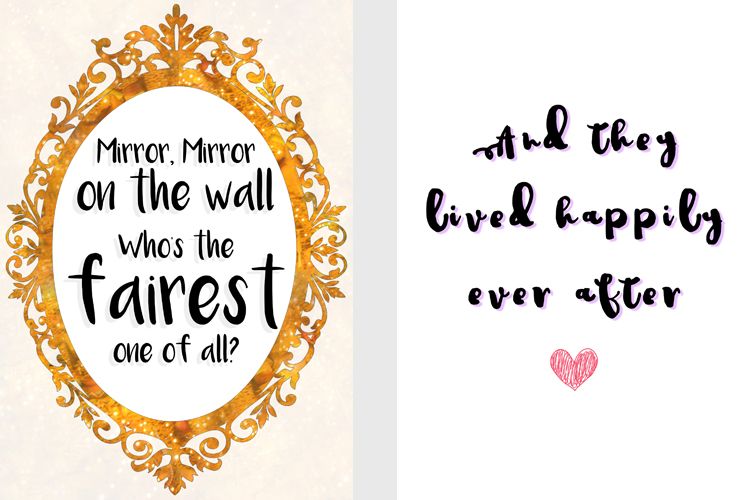 Mirror, Mirror
on the wall
Who's the
fairest
one of all?
And they
lived happily
ever after